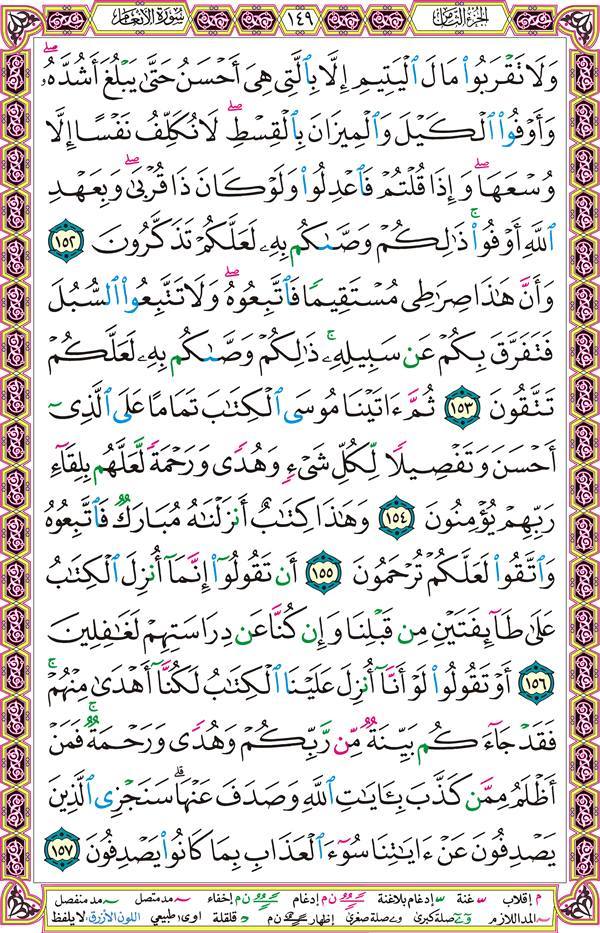 الجزء الثامن
١٤٩
سورة الأنعام
وَلَا تَقْرَبُوا۟ مَالَ ٱلْيَتِيمِ إِلَّا بِٱلَّتِى هِىَ أَحْسَنُ حَتَّىٰ يَبْلُغَ أَشُدَّهُۥۖ
وَأَوْفُوا۟ ٱلْكَيْلَ وَٱلْمِيزَانَ بِٱلْقِسْطِۖ لَا نُكَلِّفُ نَفْسًا إِلَّا
وُسْعَهَاۖ وَإِذَا قُلْتُمْ فَٱعْدِلُوا۟ وَلَوْ كَانَ ذَا قُرْبَىٰۖ وَبِعَهْدِ
ٱللَّهِ أَوْفُوا۟ۚ ذَٰلِكُمْ وَصَّىٰكُم بِهِۦ لَعَلَّكُمْ تَذَكَّرُونَ ١٥٢
وَأَنَّ هَٰذَا صِرَٰطِى مُسْتَقِيمًا فَٱتَّبِعُوهُۖ وَلَا تَتَّبِعُوا۟ ٱلسُّبُلَ
فَتَفَرَّقَ بِكُمْ عَن سَبِيلِهِۦۚ ذَٰلِكُمْ وَصَّىٰكُم بِهِۦ لَعَلَّكُمْ
تَتَّقُونَ ١٥٣ ثُمَّ ءَاتَيْنَا مُوسَى ٱلْكِتَٰبَ تَمَامًا عَلَى ٱلَّذِىٓ
أَحْسَنَ وَتَفْصِيلًا لِّكُلِّ شَىْءٍ وَهُدًى وَرَحْمَةً لَّعَلَّهُم بِلِقَآءِ
رَبِّهِمْ يُؤْمِنُونَ ١٥٤ وَهَٰذَا كِتَٰبٌ أَنزَلْنَٰهُ مُبَارَكٌ فَٱتَّبِعُوهُ
وَٱتَّقُوا۟ لَعَلَّكُمْ تُرْحَمُونَ ١٥٥ أَن تَقُولُوٓا۟ إِنَّمَآ أُنزِلَ ٱلْكِتَٰبُ
عَلَىٰ طَآئِفَتَيْنِ مِن قَبْلِنَا وَإِن كُنَّا عَن دِرَاسَتِهِمْ لَغَٰفِلِينَ
١٥٦ أَوْ تَقُولُوا۟ لَوْ أَنَّآ أُنزِلَ عَلَيْنَا ٱلْكِتَٰبُ لَكُنَّآ أَهْدَىٰ مِنْهُمْۚ
فَقَدْ جَآءَكُم بَيِّنَةٌ مِّن رَّبِّكُمْ وَهُدًى وَرَحْمَةٌۚ فَمَنْ
أَظْلَمُ مِمَّن كَذَّبَ بِـَٔايَٰتِ ٱللَّهِ وَصَدَفَ عَنْهَاۗ سَنَجْزِى ٱلَّذِينَ
يَصْدِفُونَ عَنْ ءَايَٰتِنَا سُوٓءَ ٱلْعَذَابِ بِمَا كَانُوا۟ يَصْدِفُونَ ١٥٧
م إقلاب غنة إدغام بلاغنة ن م إدغام ن م إخفاء مد متصل مد منفصل
المد اللازم صلة كبرى صلة صغرى إظهار ن م قلقلة اوى طبيعي اللون الأزرق لا يلفظ